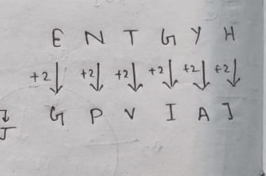 E N T G Y H
+2 +2 +2 +2 +2 +2
G P V I A J